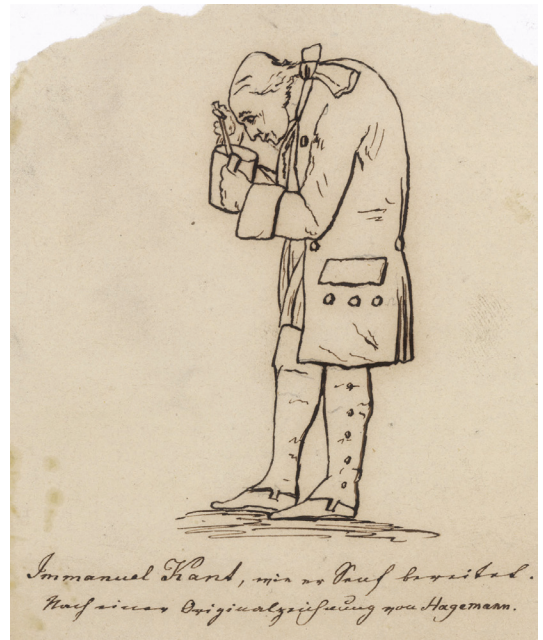 Immanuel Kant, wie er Senf bereitet.
Nach einer Originalzeichnung von Hagemann.